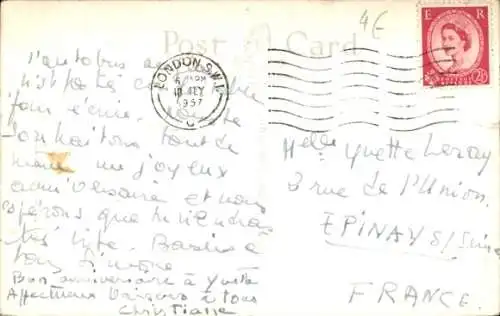 4€
Post Card
E R
2½
LONDON S.W.1
1957
C
L'autobus
pour écrire.
souhaitons tout de
même un joyeux
anniversaire et nous
espérons que tu viendras
très vite. Baisers à
tous Simone
Bon anniversaire à Yvette
Affectueux baisers à tous
Christiane
Melle Yvette Leroy
3 rue de l'Union
EPINAY S/Seine
FRANCE.